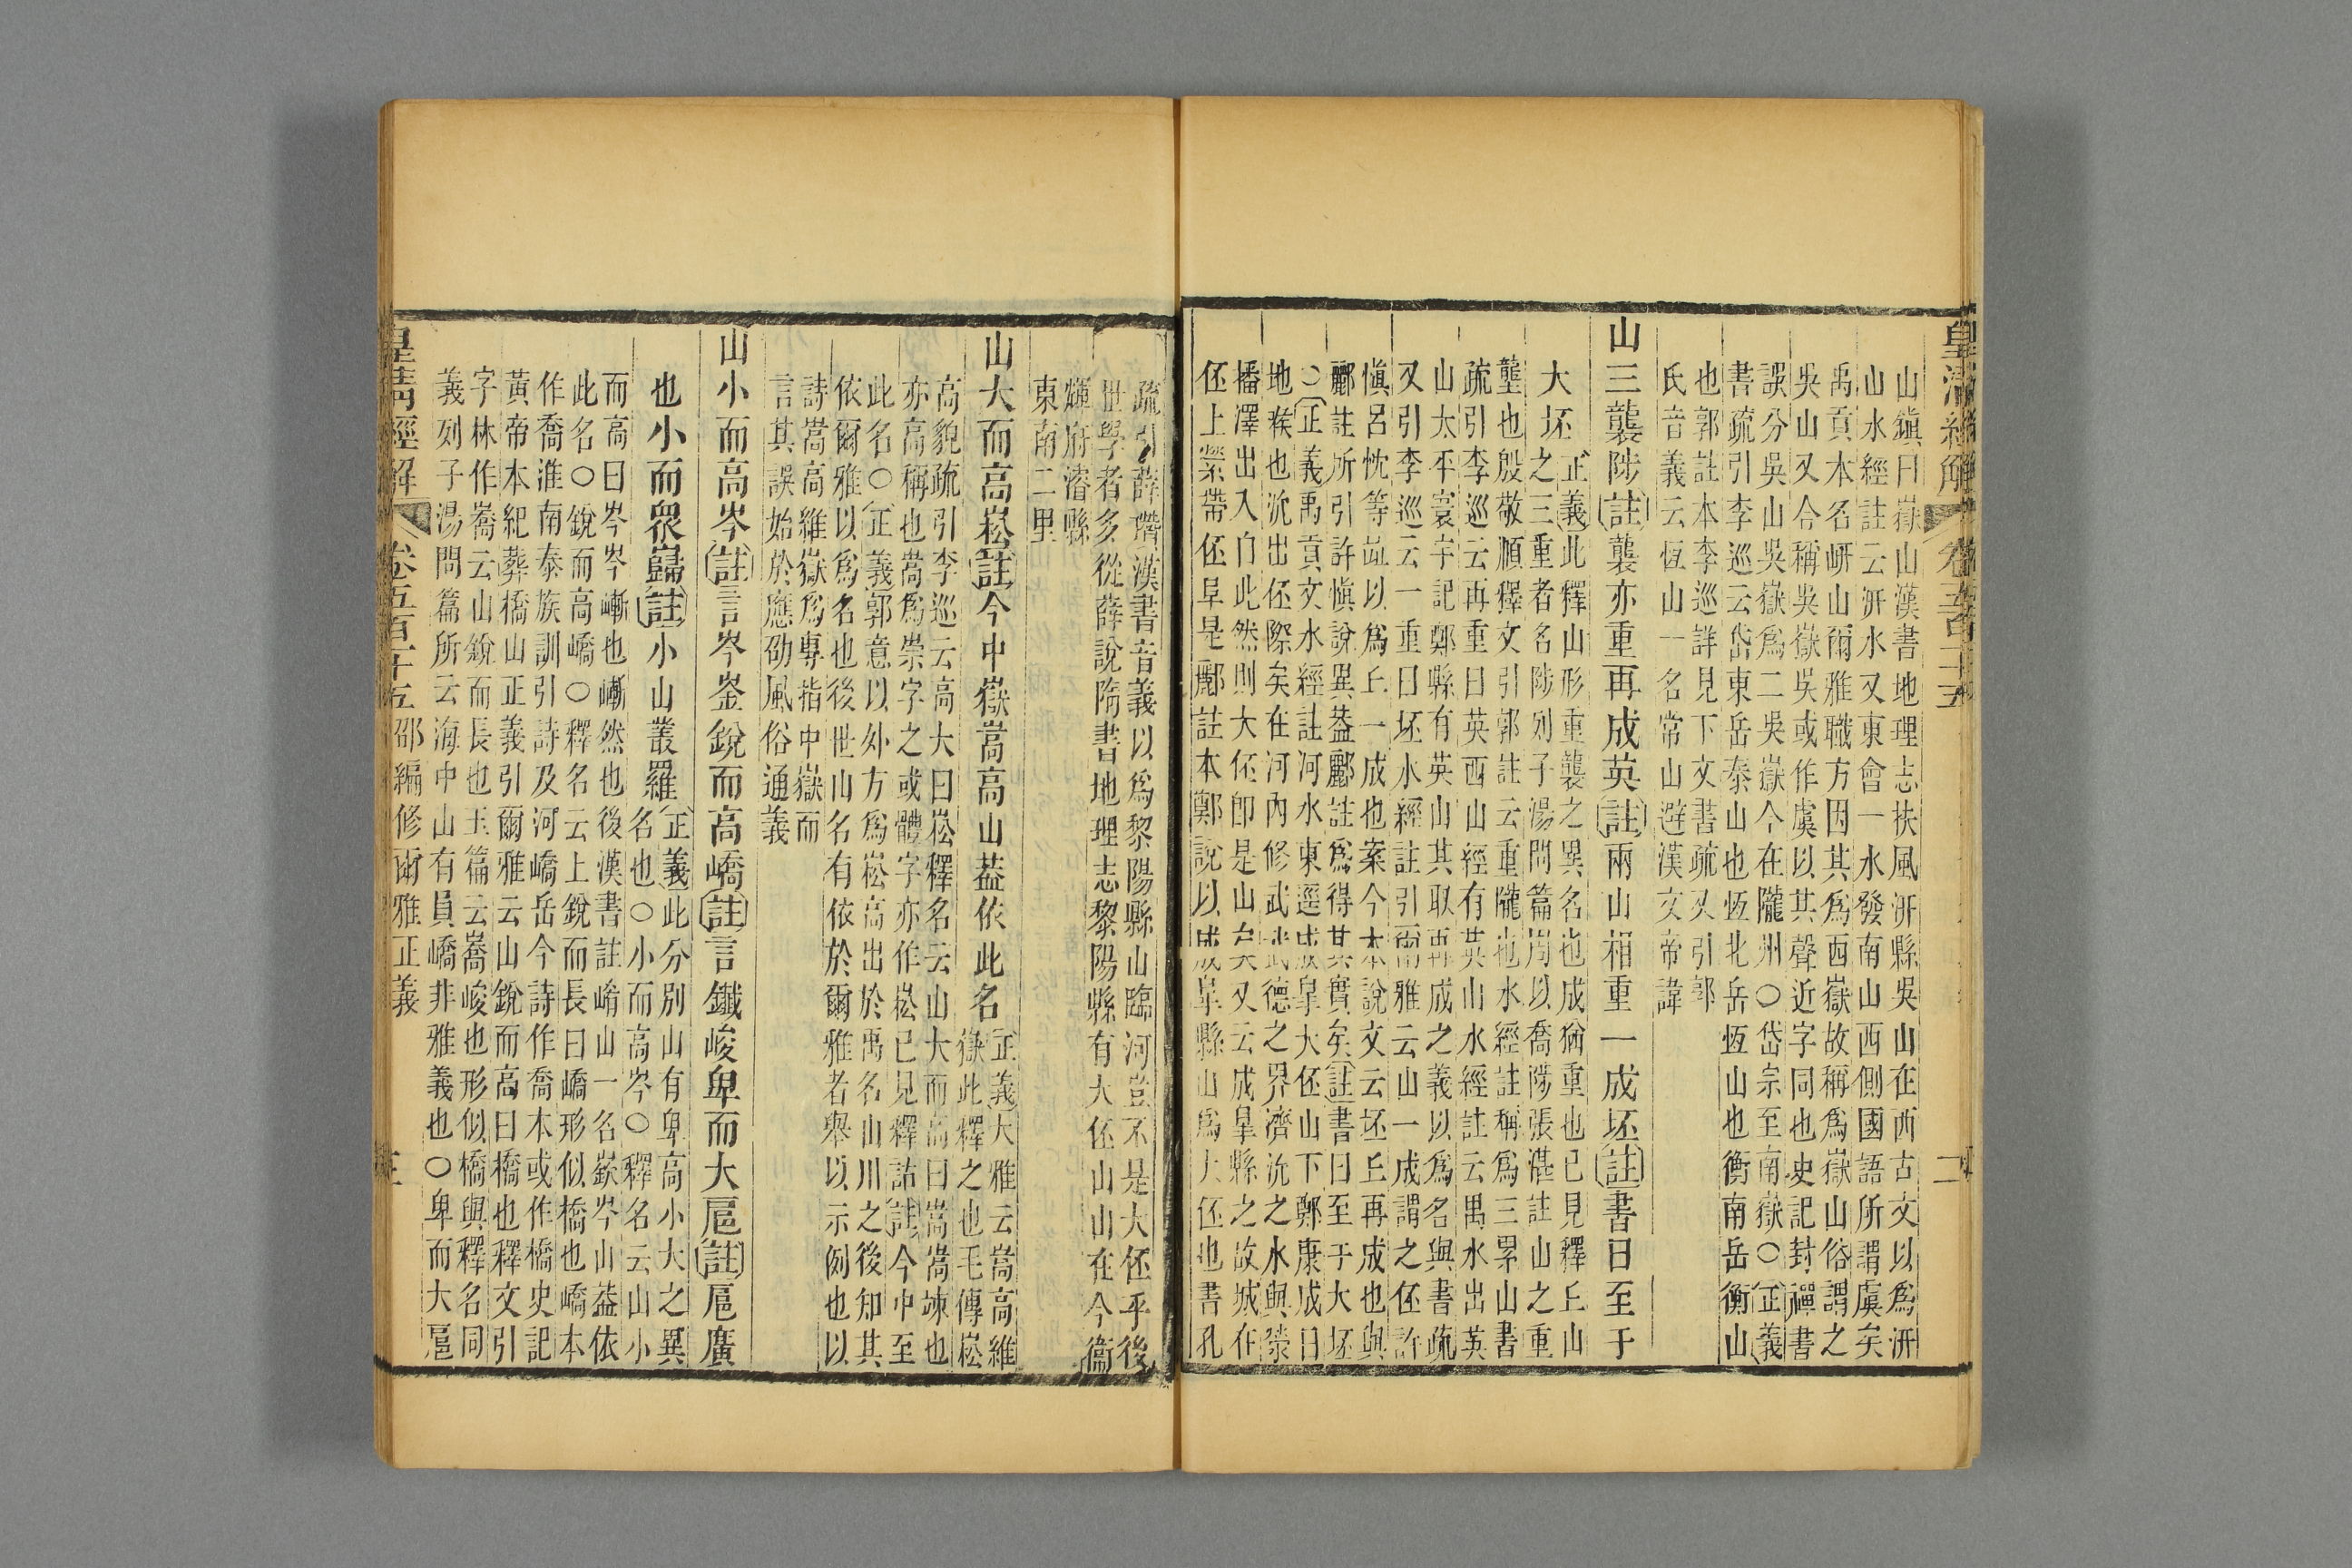 皇清經解
卷五百十五
二
山鎮曰嶽山漢書地理志扶風汧縣吳山在西古文以爲汧
山水經註云汧水又東會一水發南山西側國語所謂虞矣
禹貢本名岍山爾雅職方因其爲西嶽故稱爲嶽山俗謂之
吳山又合稱吳嶽吳或作虞以其聲近字同也史記封禪書
誤分吳山吳嶽爲二吳嶽今在隴州○岱宗至南嶽○正義
書疏引李巡云岱東岳泰山也恆北岳恆山也衡南岳衡山
也郭註本李巡詳見下文書疏又引郭
氏音義云恆山一名常山避漢文帝諱
山三襲陟註襲亦重再成英註兩山相重一成坯註書曰至于
大坯正義此釋山形重襲之異名也成猶重也已見釋丘山
之三重者名陟列子湯問篇周以喬陟張湛註山之重
壟也殷敬順釋文引郭註云重隴也水經註稱爲三累山書
疏引李巡云再重曰英西山經有英山水經註云禹水出英
山太平寰宇記鄭縣有英山其取再成之義以爲名與書疏
又引李巡云一重曰坯水經註引爾雅云山一成謂之伾許
愼呂忱等竝以爲丘一成也案今本說文云坯丘再成也與
酈註所引許愼說異葢酈註爲得其實矣註書曰至于大坯
○正義禹貢文水經註河水東逕成皐大伾山下鄭康成曰
地喉也沇出伾際矣在河內修武武德之界濟沇之水與滎
播澤出入自此然則大伾卽是山矣又云成皐縣之故城在
伾上縈帶伾阜是酈註本鄭說以成皐縣山爲大伾也書孔
疏引薛瓚漢書音義以爲黎陽縣山臨河豈不是大伾乎後
世學者多從薛說隋書地理志黎陽縣有大伾山山在今衞
輝府濬縣
東南二里
山大而高崧註今中嶽嵩高山葢依此名正義大雅云嵩高維
嶽此釋之也毛傳崧
高貌疏引李巡云高大曰崧釋名云山大而高曰嵩嵩竦也
亦高稱也嵩爲崇字之或體字亦作崧已見釋詁註今中至
此名○正義郭意以外方爲崧高出於禹名山川之後知其
依爾雅以爲名也後世山名有依於爾雅者舉以示例也以
詩嵩高維嶽爲專指中嶽而
言其誤始於應劭風俗通義
山小而高岑註言岑崟銳而高嶠註言鑯峻卑而大扈註扈廣
也小而眾巋註小山叢羅正義此分別山有卑高小大之異
名也○小而高岑○釋名云山小
而高曰岑岑嶃也嶃然也後漢書註崤山一名嶔岑山葢依
此名○銳而高嶠○釋名云上銳而長曰嶠形似橋也嶠本
作喬淮南泰族訓引詩及河嶠岳今詩作喬本或作橋史記
黃帝本紀葬橋山正義引爾雅云山銳而高曰橋也釋文引
字林作嶠云山銳而長也玉篇云嶠峻也形似橋與釋名同
義列子湯問篇所云海中山有員嶠非雅義也○卑而大扈
皇淸經解
卷五百十五
邵編修爾雅正義
三